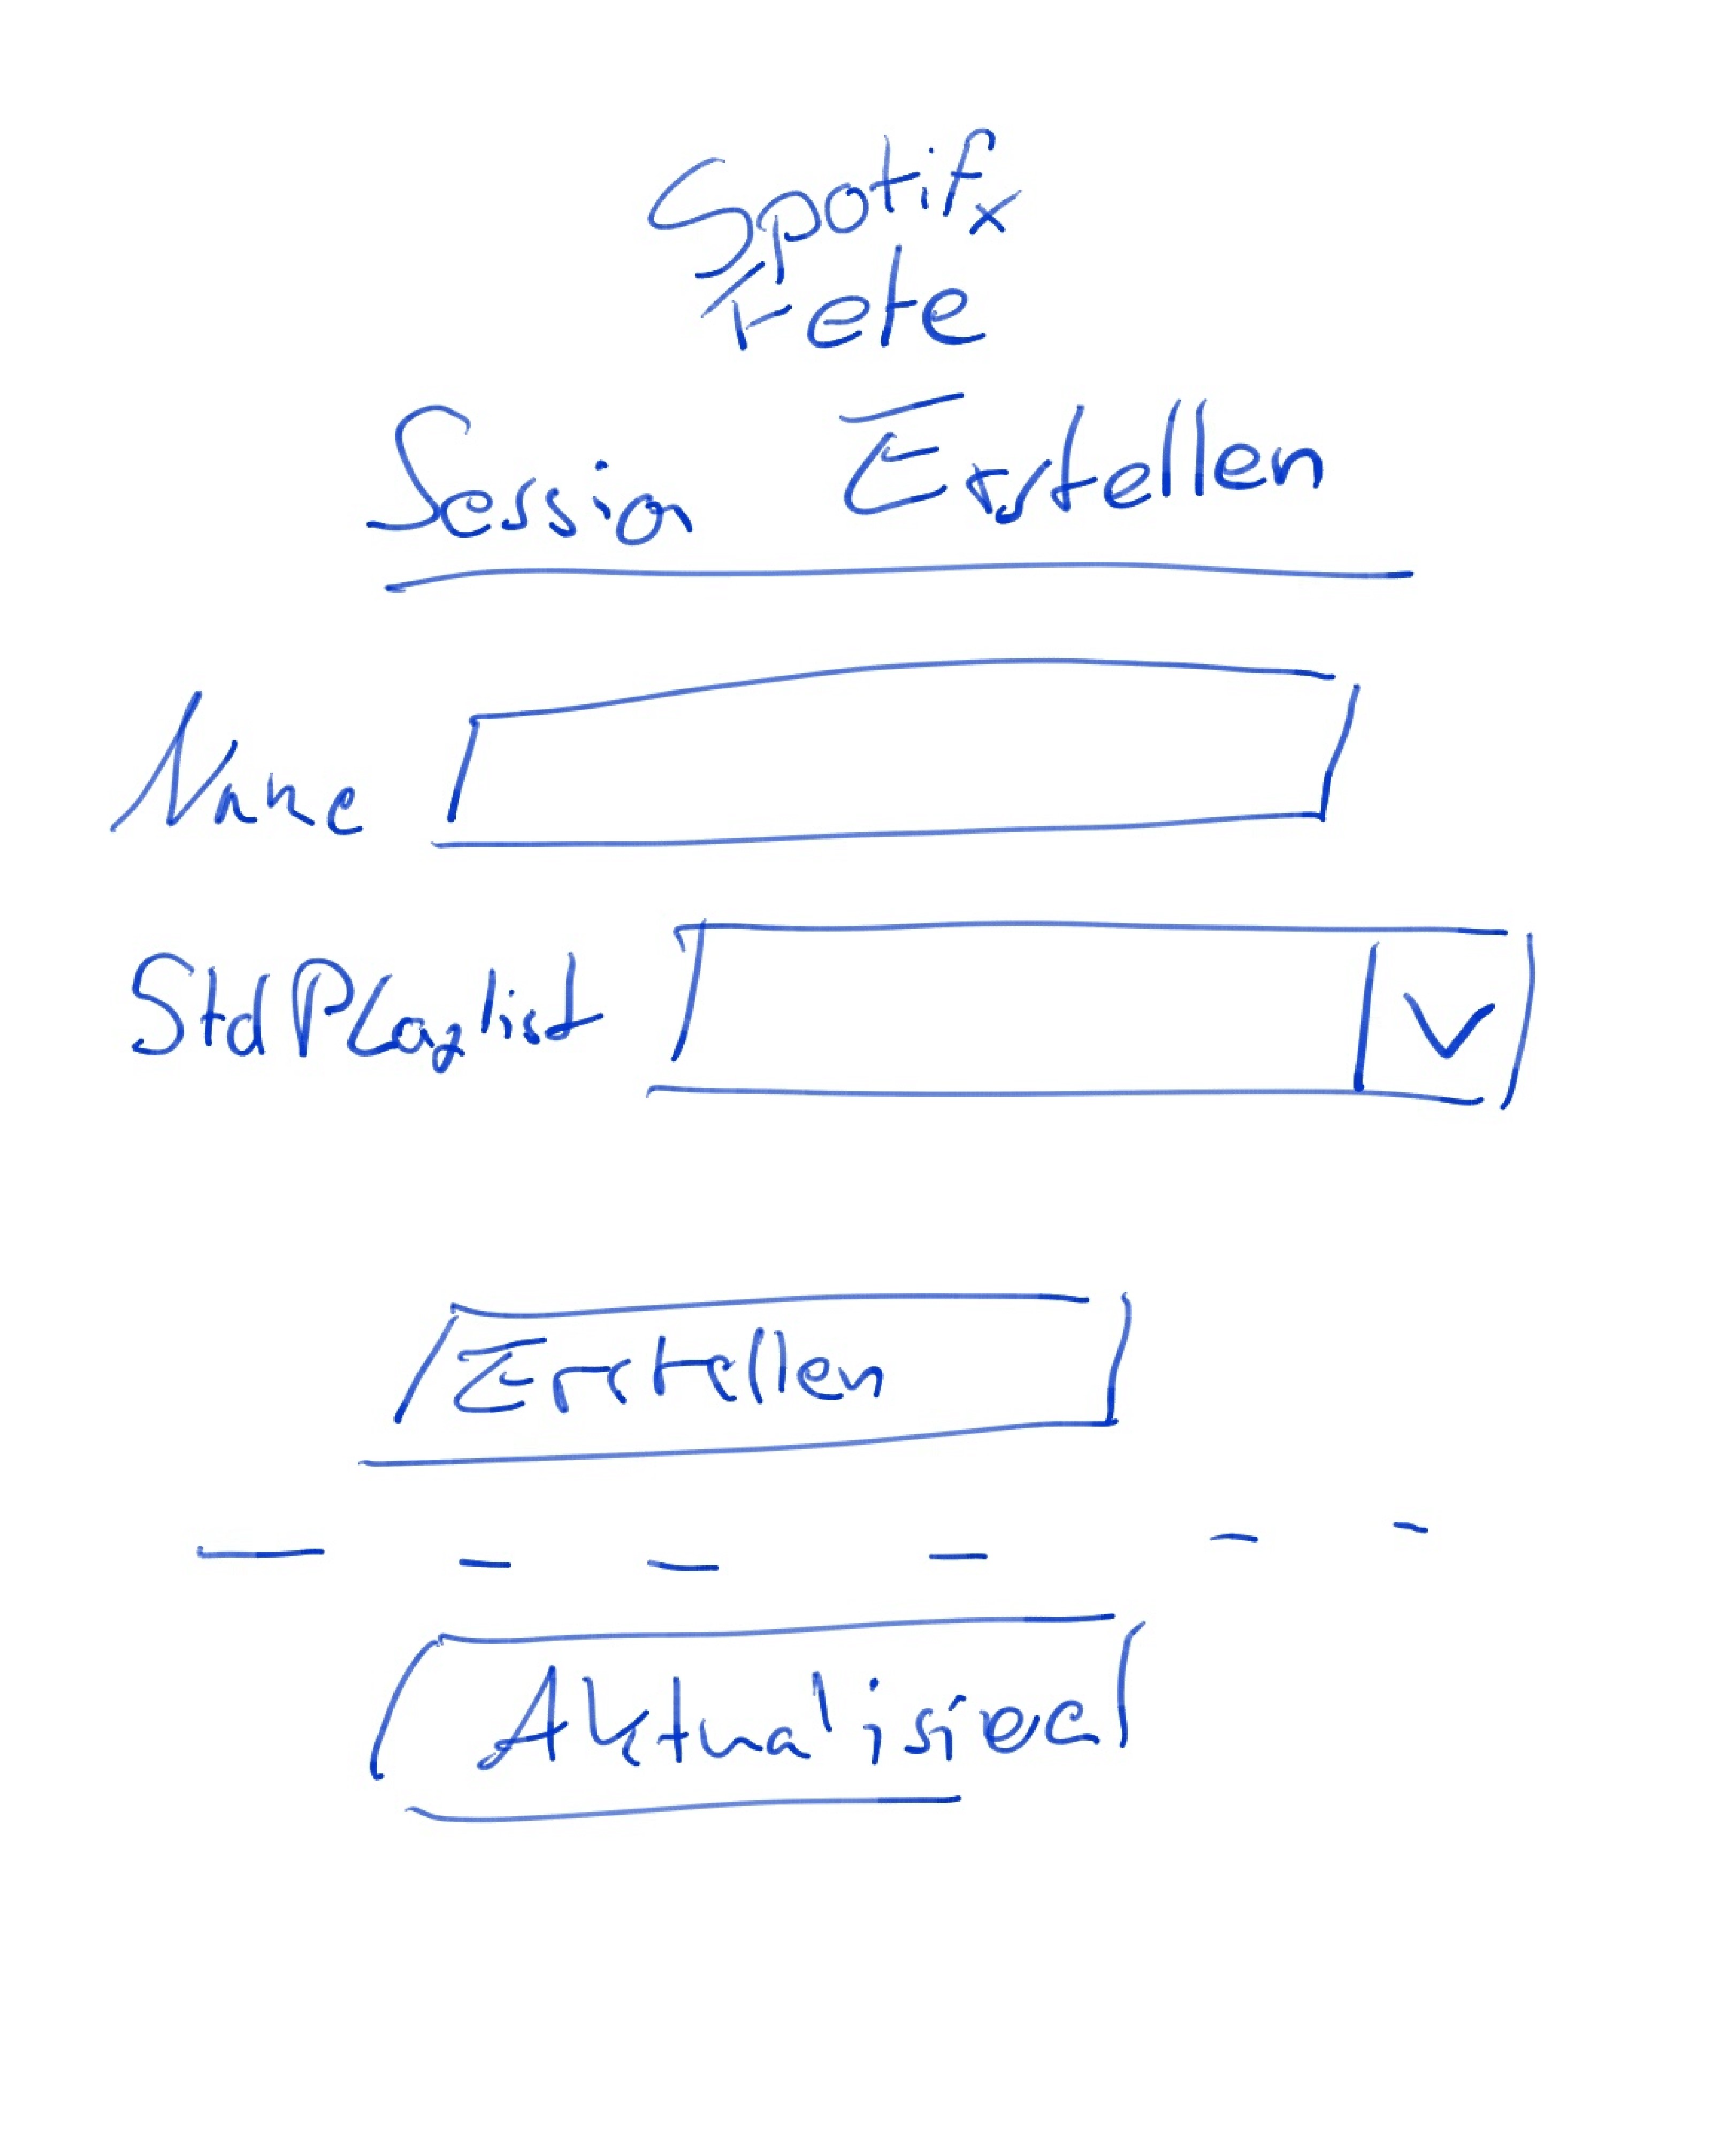 Spotify
Fete
Session Erstellen
Name
Std Playlist
Erstellen
Aktualisieren